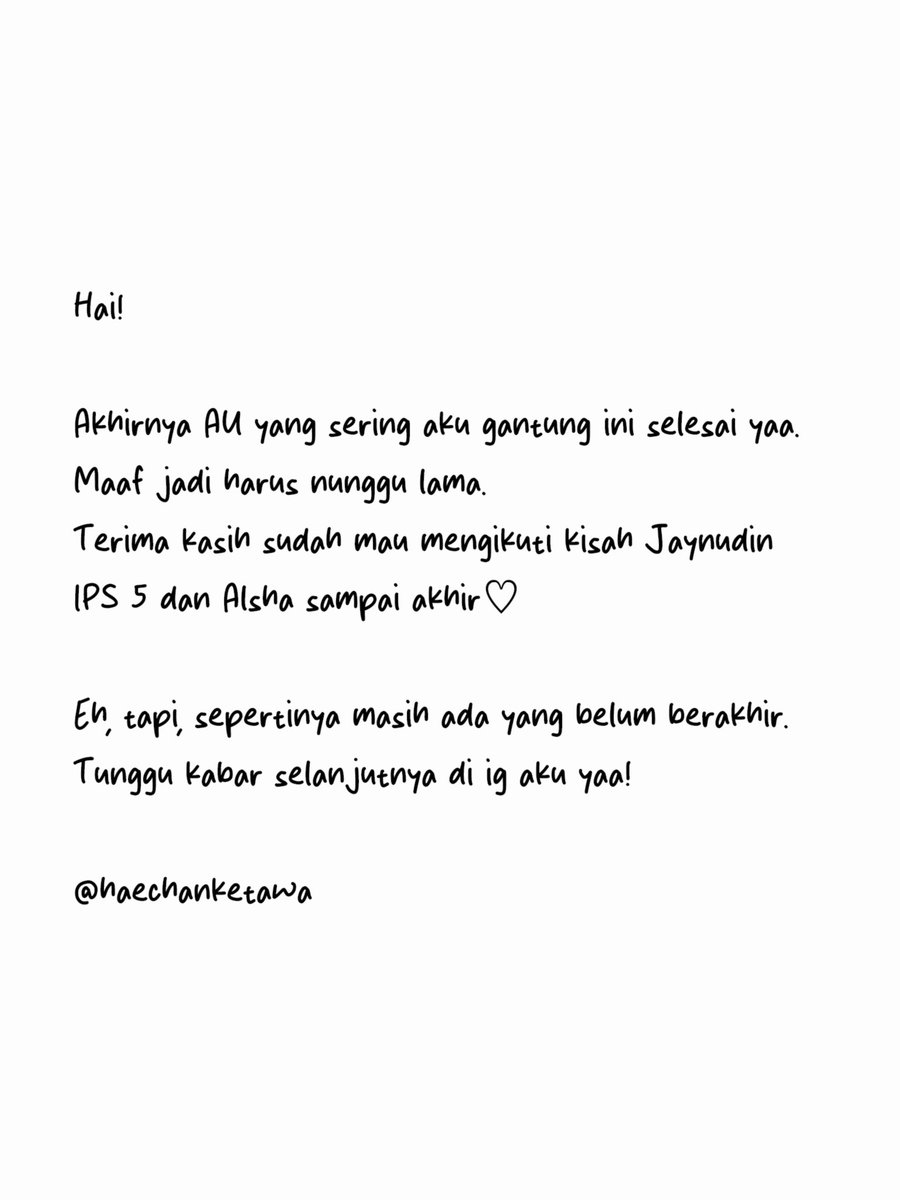 Hai!
Akhirnya AU yang sering aku gantung ini selesai yaa.
Maaf jadi harus nunggu lama.
Terima kasih sudah mau mengikuti kisah Jaynudin
IPS 5 dan Alsha sampai akhir♡
Eh, tapi, sepertinya masih ada yang belum berakhir.
Tunggu kabar selanjutnya di ig aku yaa!
@haechanketawa